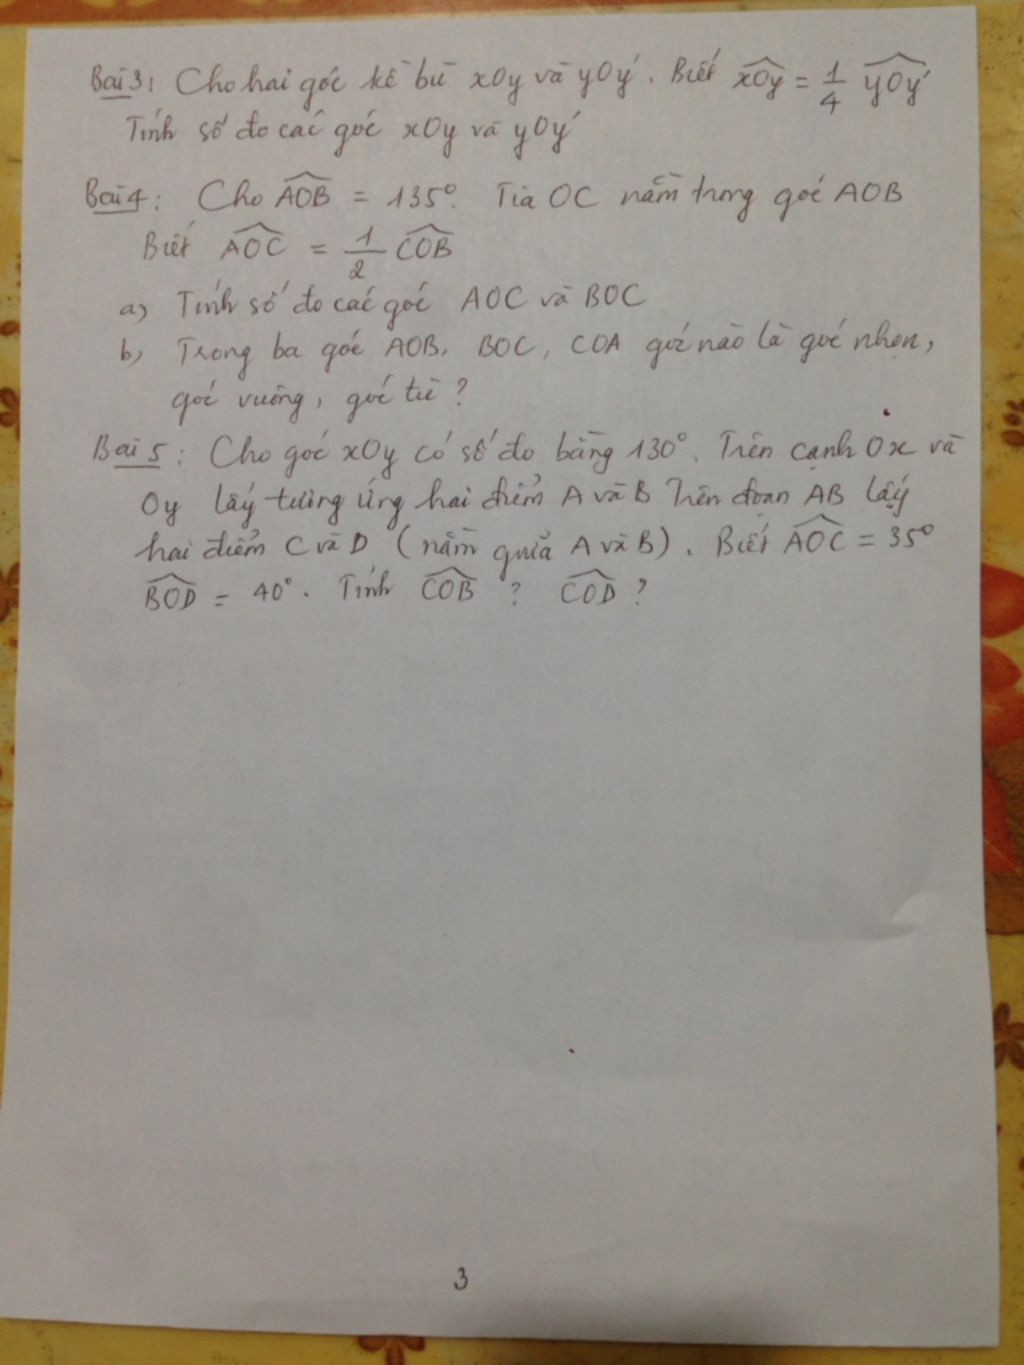 Bài 3: Cho hai góc kề bù xOy và yOy'. Biết xOy = 1/4 yOy'
Tính số đo các góc xOy và yOy'
Bài 4: Cho AOB = 135°. Tia OC nằm trong góc AOB
Biết AOC = 1/2 COB
a) Tính số đo các góc AOC và BOC
b) Trong ba góc AOB, BOC, COA góc nào là góc nhọn,
góc vuông, góc tù?
Bài 5: Cho góc xOy có số đo bằng 130°. Trên cạnh Ox và
Oy lấy tương ứng hai điểm A và B Trên đoạn AB lấy
hai điểm C và D (nằm giữa A và B). Biết AOC = 35°
BOD = 40°. Tính COB ? COD ?
3